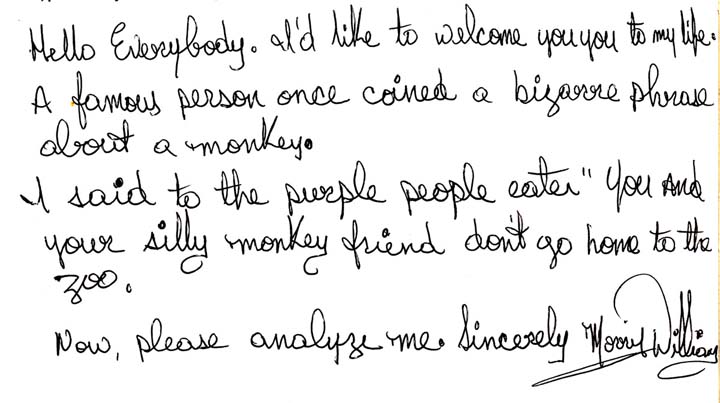 Hello Everybody. I'd like to welcome you you to my life.
A famous person once coined a bizarre phrase
about a monkey.
I said to the purple people eater" You And
your silly monkey friend don't go home to the
zoo.
Now, please analyze me. Sincerely Morris William